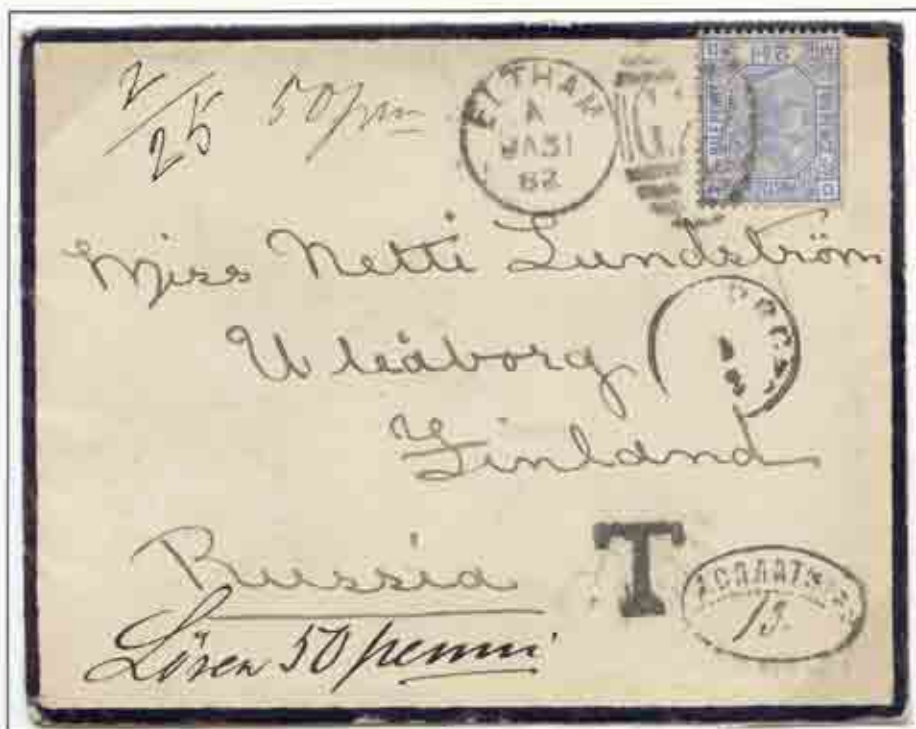 2/25 50 pm
ELTHAM
A
JA 31
82
Miss Netti Lundström
Uleåborg
Finland
Russia
T
ДОПЛАТИТЬ
13.
Lösen 50 penni